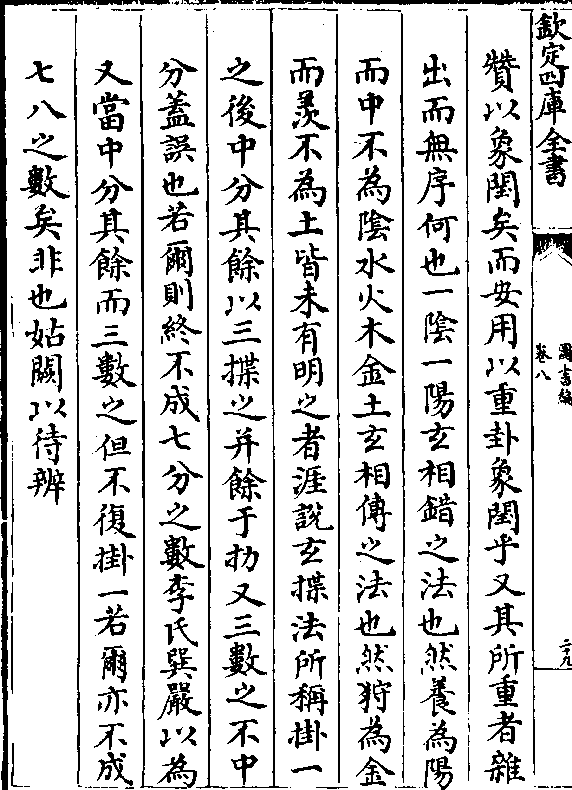 欽定四庫全書
圖書編
卷八
二十九
贊以象閏矣而安用以重卦象閏乎又其所重者雜
出而無序何也一陰一陽玄相錯之法也然養為陽
而中不為陰水火木金土玄相傳之法也然狩為金
而羨不為土皆未有明之者涯說玄揲法所稱掛一
之後中分其餘以三揲之并餘于扐又三數之不中
分蓋誤也若爾則終不成七分之數李氏巽嚴以為
又當中分其餘而三數之但不復掛一若爾亦不成
七八之數矣非也姑闕以待辨